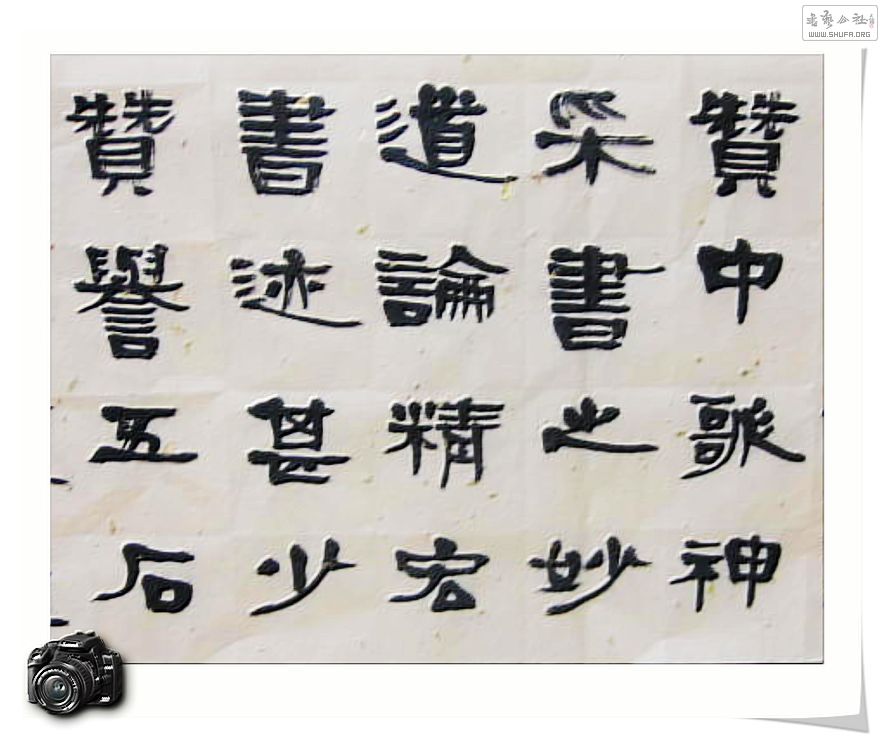 贊中歌神
采書之妙
道論精宏
書述甚少
贊譽五石
書藝公社
WWW.SHUFA.ORG